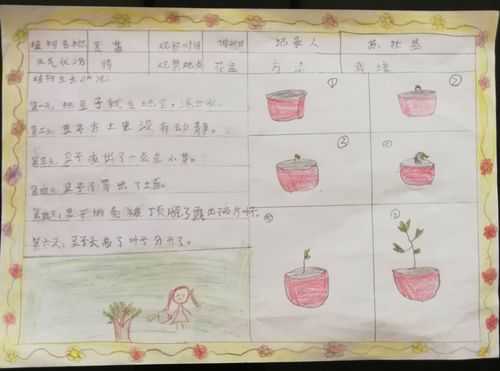 植物名称 豆苗 观察时间 记录人
天气状况 晴 观察地点 花盆 方法 栽培
植物生长情况
第一天,把豆子种在地里,浇上水。
第二天,豆子在土里没有动静。
第三天,豆子发出了一点点小芽。
第四天,豆子芽冒出了土面。
第五天,豆子的壳被顶破了露出两片
第六天,豆子长高了叶子分开了。
① ②
③ ④
⑤ ⑥